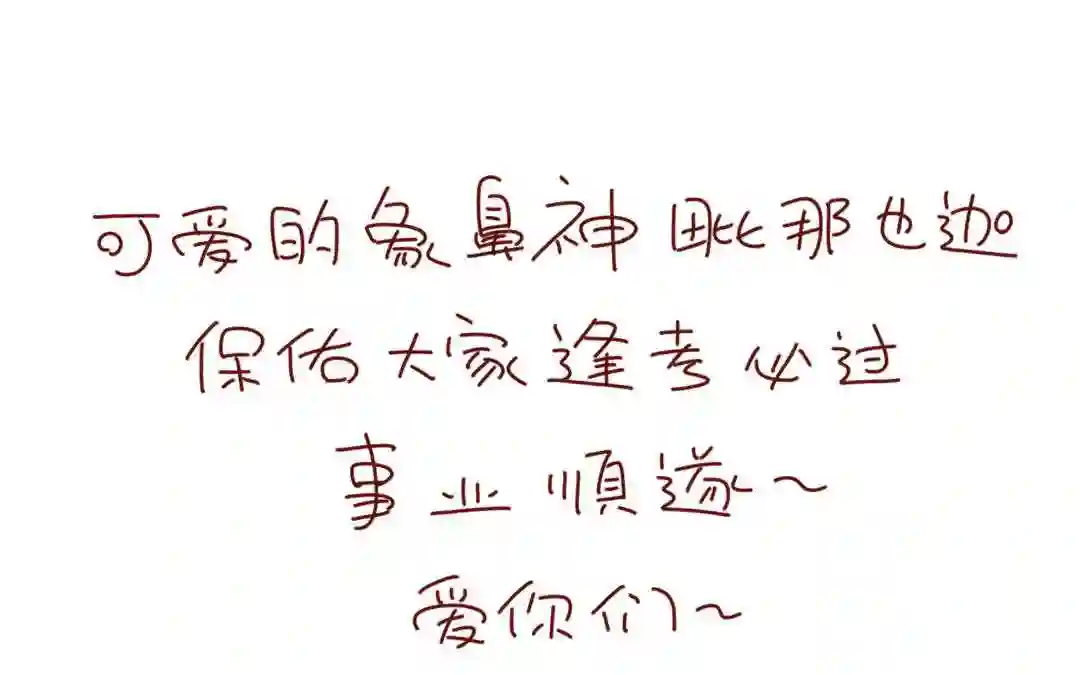 可爱的象鼻神毗那也迦
保佑大家逢考必过
事业順遂~
爱你们~